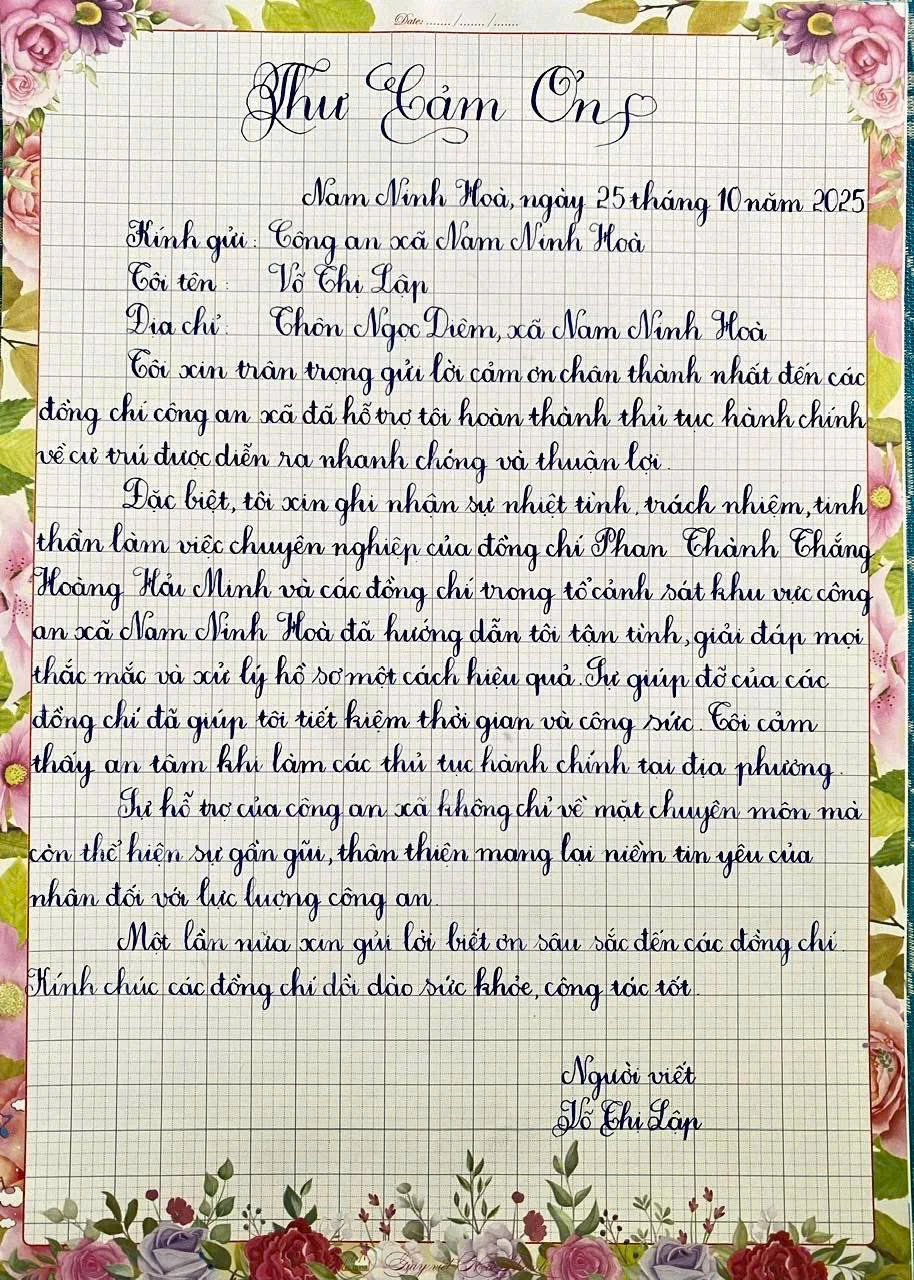 Date: ....... /....... /.......
Thư Cảm Ơn
Nam Ninh Hoà, ngày 25 tháng 10 năm 2025
Kính gửi: Công an xã Nam Ninh Hoà
Tôi tên: Võ Thị Lập
Địa chỉ: Thôn Ngọc Diêm, xã Nam Ninh Hoà
Tôi xin trân trọng gửi lời cảm ơn chân thành nhất đến các
đồng chí công an xã đã hỗ trợ tôi hoàn thành thủ tục hành chính
về cư trú được diễn ra nhanh chóng và thuận lợi.
Đặc biệt, tôi xin ghi nhận sự nhiệt tình, trách nhiệm, tinh
thần làm việc chuyên nghiệp của đồng chí Phan Thành Thắng
Hoàng Hải Minh và các đồng chí trong tổ cảnh sát khu vực công
an xã Nam Ninh Hoà đã hướng dẫn tôi tận tình, giải đáp mọi
thắc mắc và xử lý hồ sơ một cách hiệu quả. Sự giúp đỡ của các
đồng chí đã giúp tôi tiết kiệm thời gian và công sức. Tôi cảm
thấy an tâm khi làm các thủ tục hành chính tại địa phương.
Sự hỗ trợ của công an xã không chỉ về mặt chuyên môn mà
còn thể hiện sự gần gũi, thân thiên mang lại niềm tin yêu của
nhân đối với lực lượng công an.
Một lần nữa xin gửi lời biết ơn sâu sắc đến các đồng chí.
Kính chúc các đồng chí dồi dào sức khỏe, công tác tốt.
Người viết
Võ Thị Lập